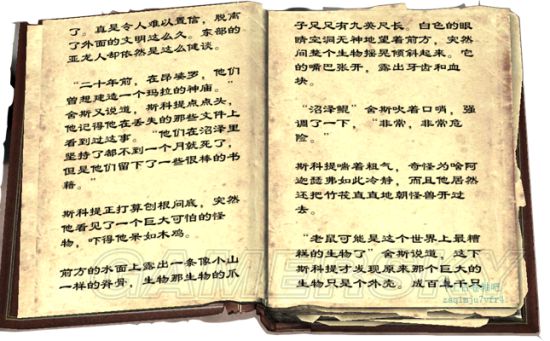 了。真是令人难以置信，脱离
了外面的文明这么久。东部的
亚龙人却依然是这么健谈。
“二十年前，在昂婆罗，他们
曾想建造一个玛拉的神庙。”
舍斯又说道，斯科提点点头，
他记得他在丢失的那些文件上
看到过这事。“他们在沼泽里
坚持了都不到一个月就死了，
但是他们留下了一些很棒的书
籍。”
斯科提正打算刨根问底，突然
他看见了一个巨大可怕的怪
物，吓得他呆如木鸡。
前方的水面上露出一条像小山
一样的脊骨，生物那生物的爪
子足足有九英尺长，白色的眼
睛空洞无神地望着前方，突然
间整个生物摇晃倾斜起来。它
的嘴巴张开，露出牙齿和血
块。
“沼泽鲲”舍斯吹着口哨，强
调了一下，“非常，非常危
险。”
斯科提喘着粗气，奇怪为啥阿
迦瑟弗如此冷静，而且他居然
还把竹筏直直地朝怪兽开过
去。
“老鼠可能是这个世界上最糟
糕的生物了”舍斯说道，这下
斯科提才发现原来那个巨大的
生物只是个外壳。成百单千只
GAMERSKY
zaqimju7yfr4